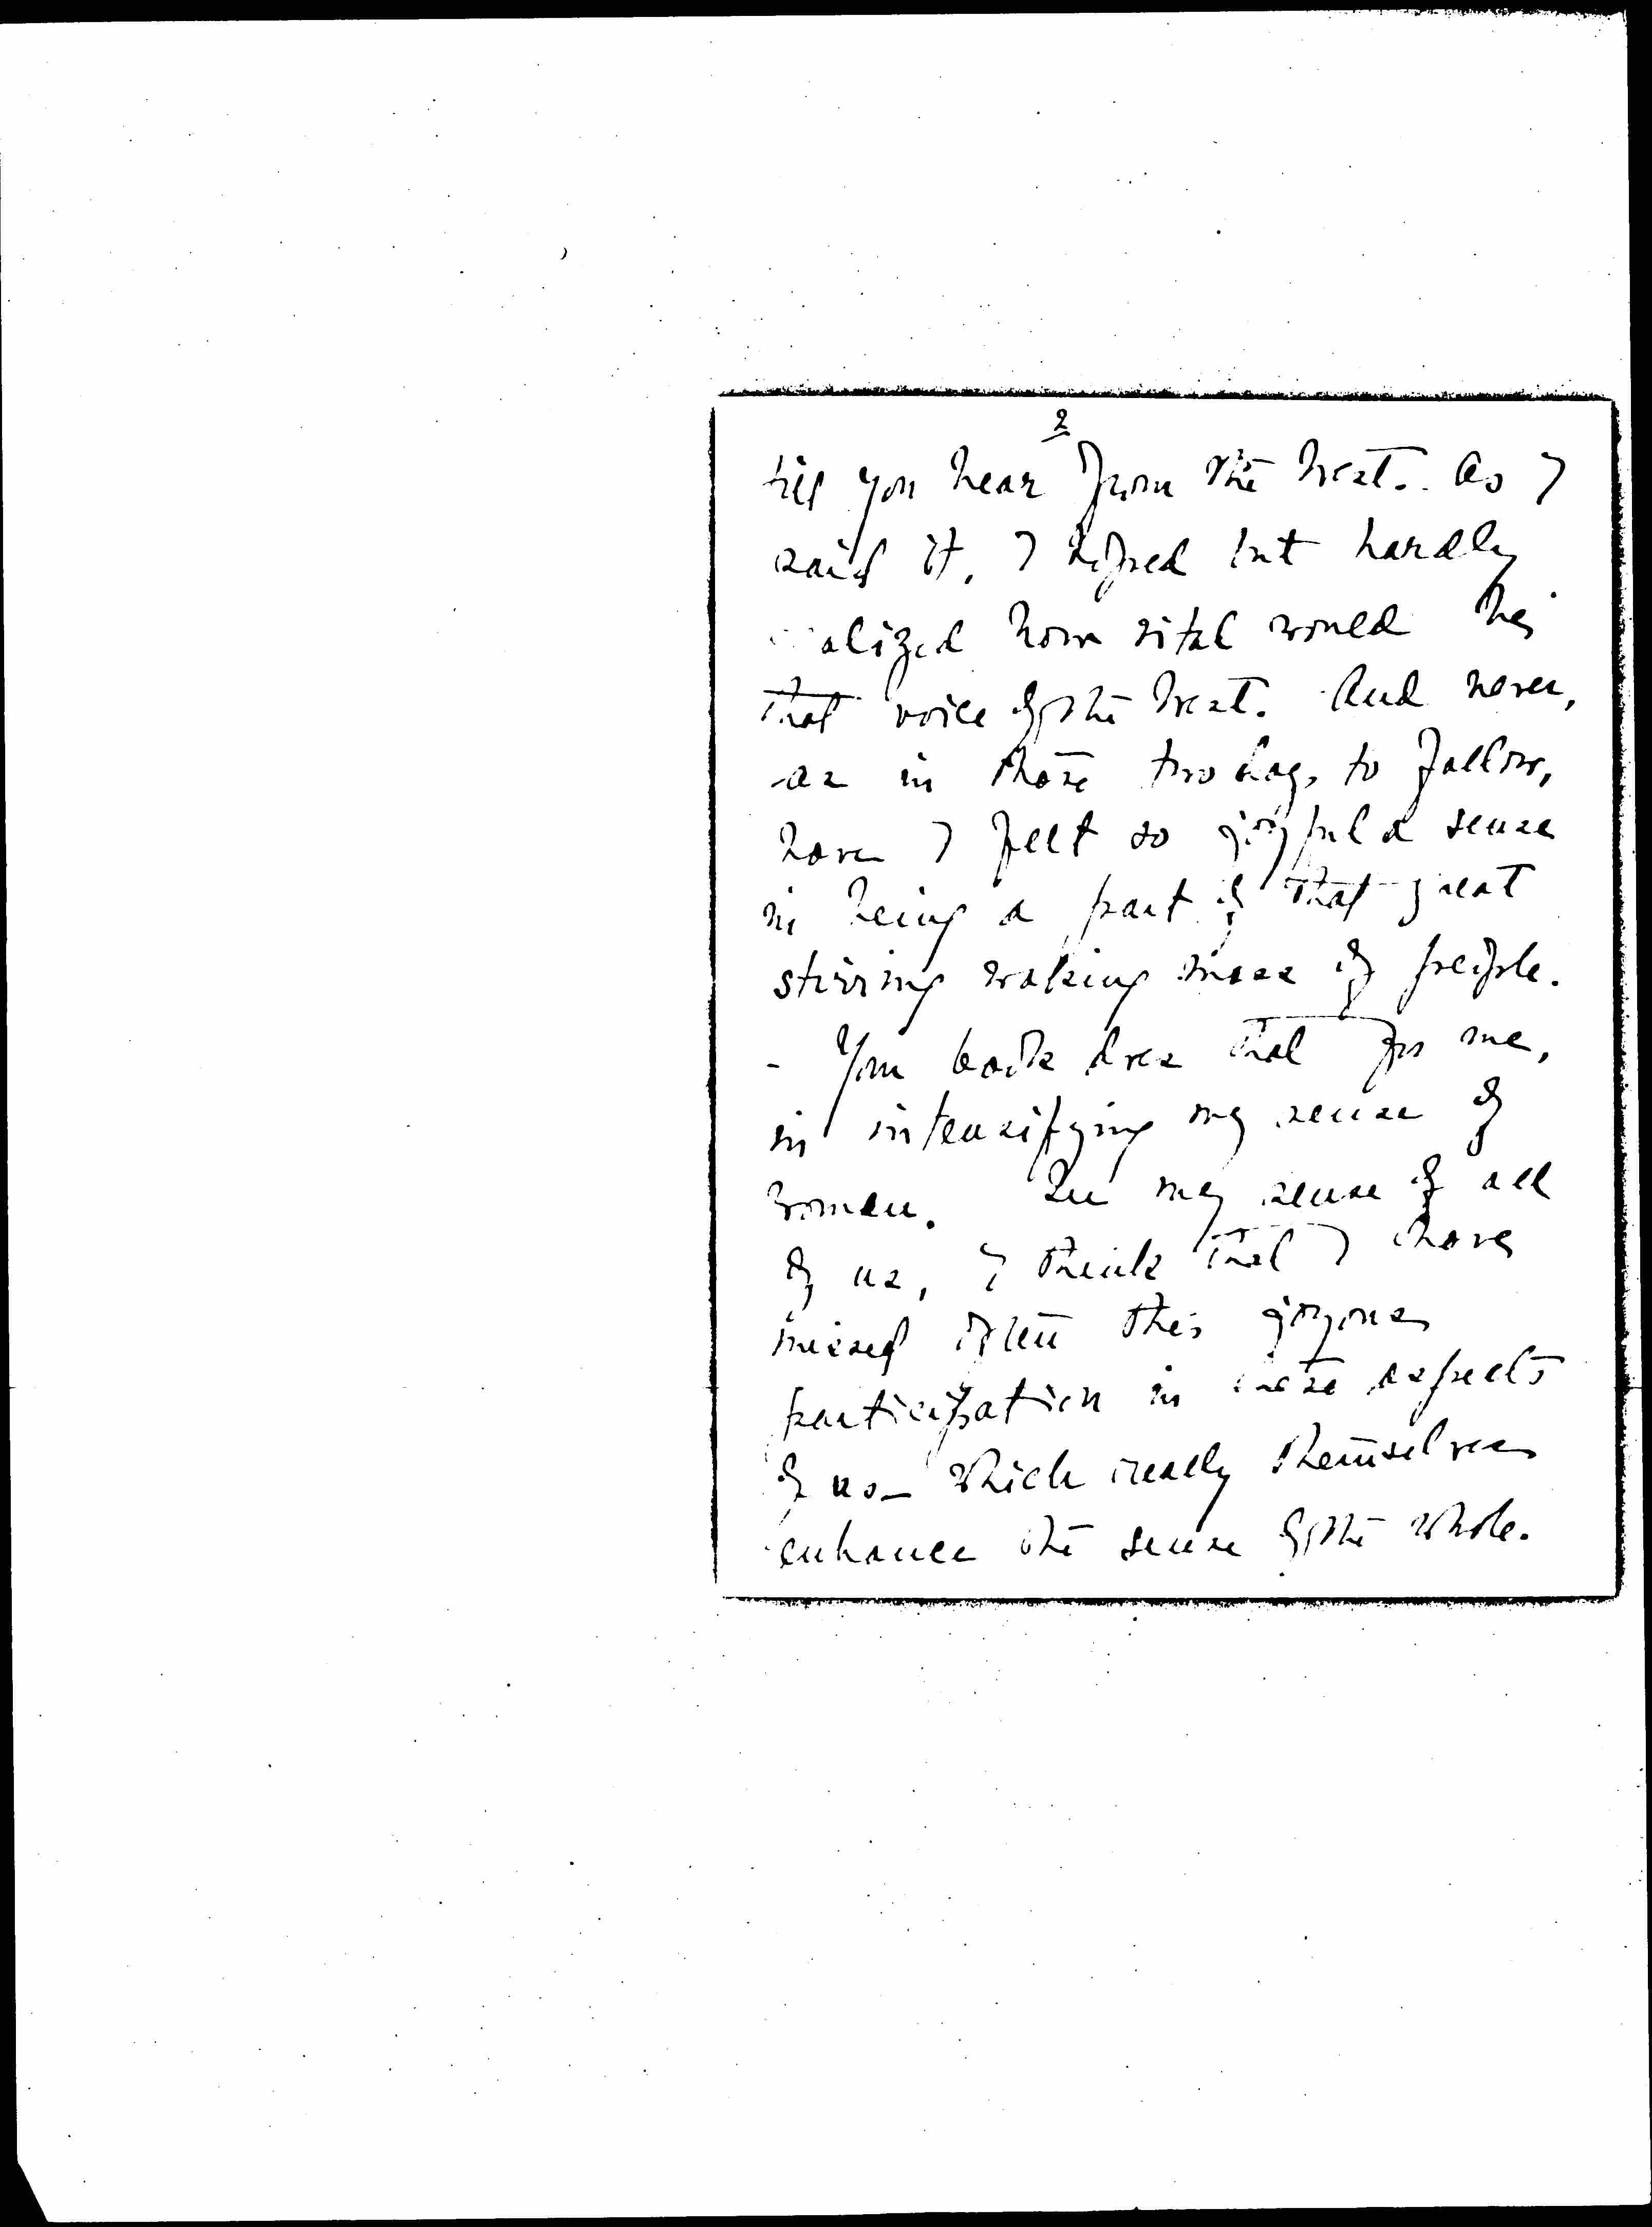 2
till you hear from the West. As I
said it, I hoped but hardly
alized how vital would be
that voice of the West. And never,
as in those two days to follow,
have I felt so joyful a sense
in being a part of that great
stirring waking mass of people.
- Your book does that for me,
in intensifying my sense of
women. In my sense of all
of us, I think that I have
missed often this joyous
participation in these aspects
of us - which really themselves
enhance the sense of the whole.